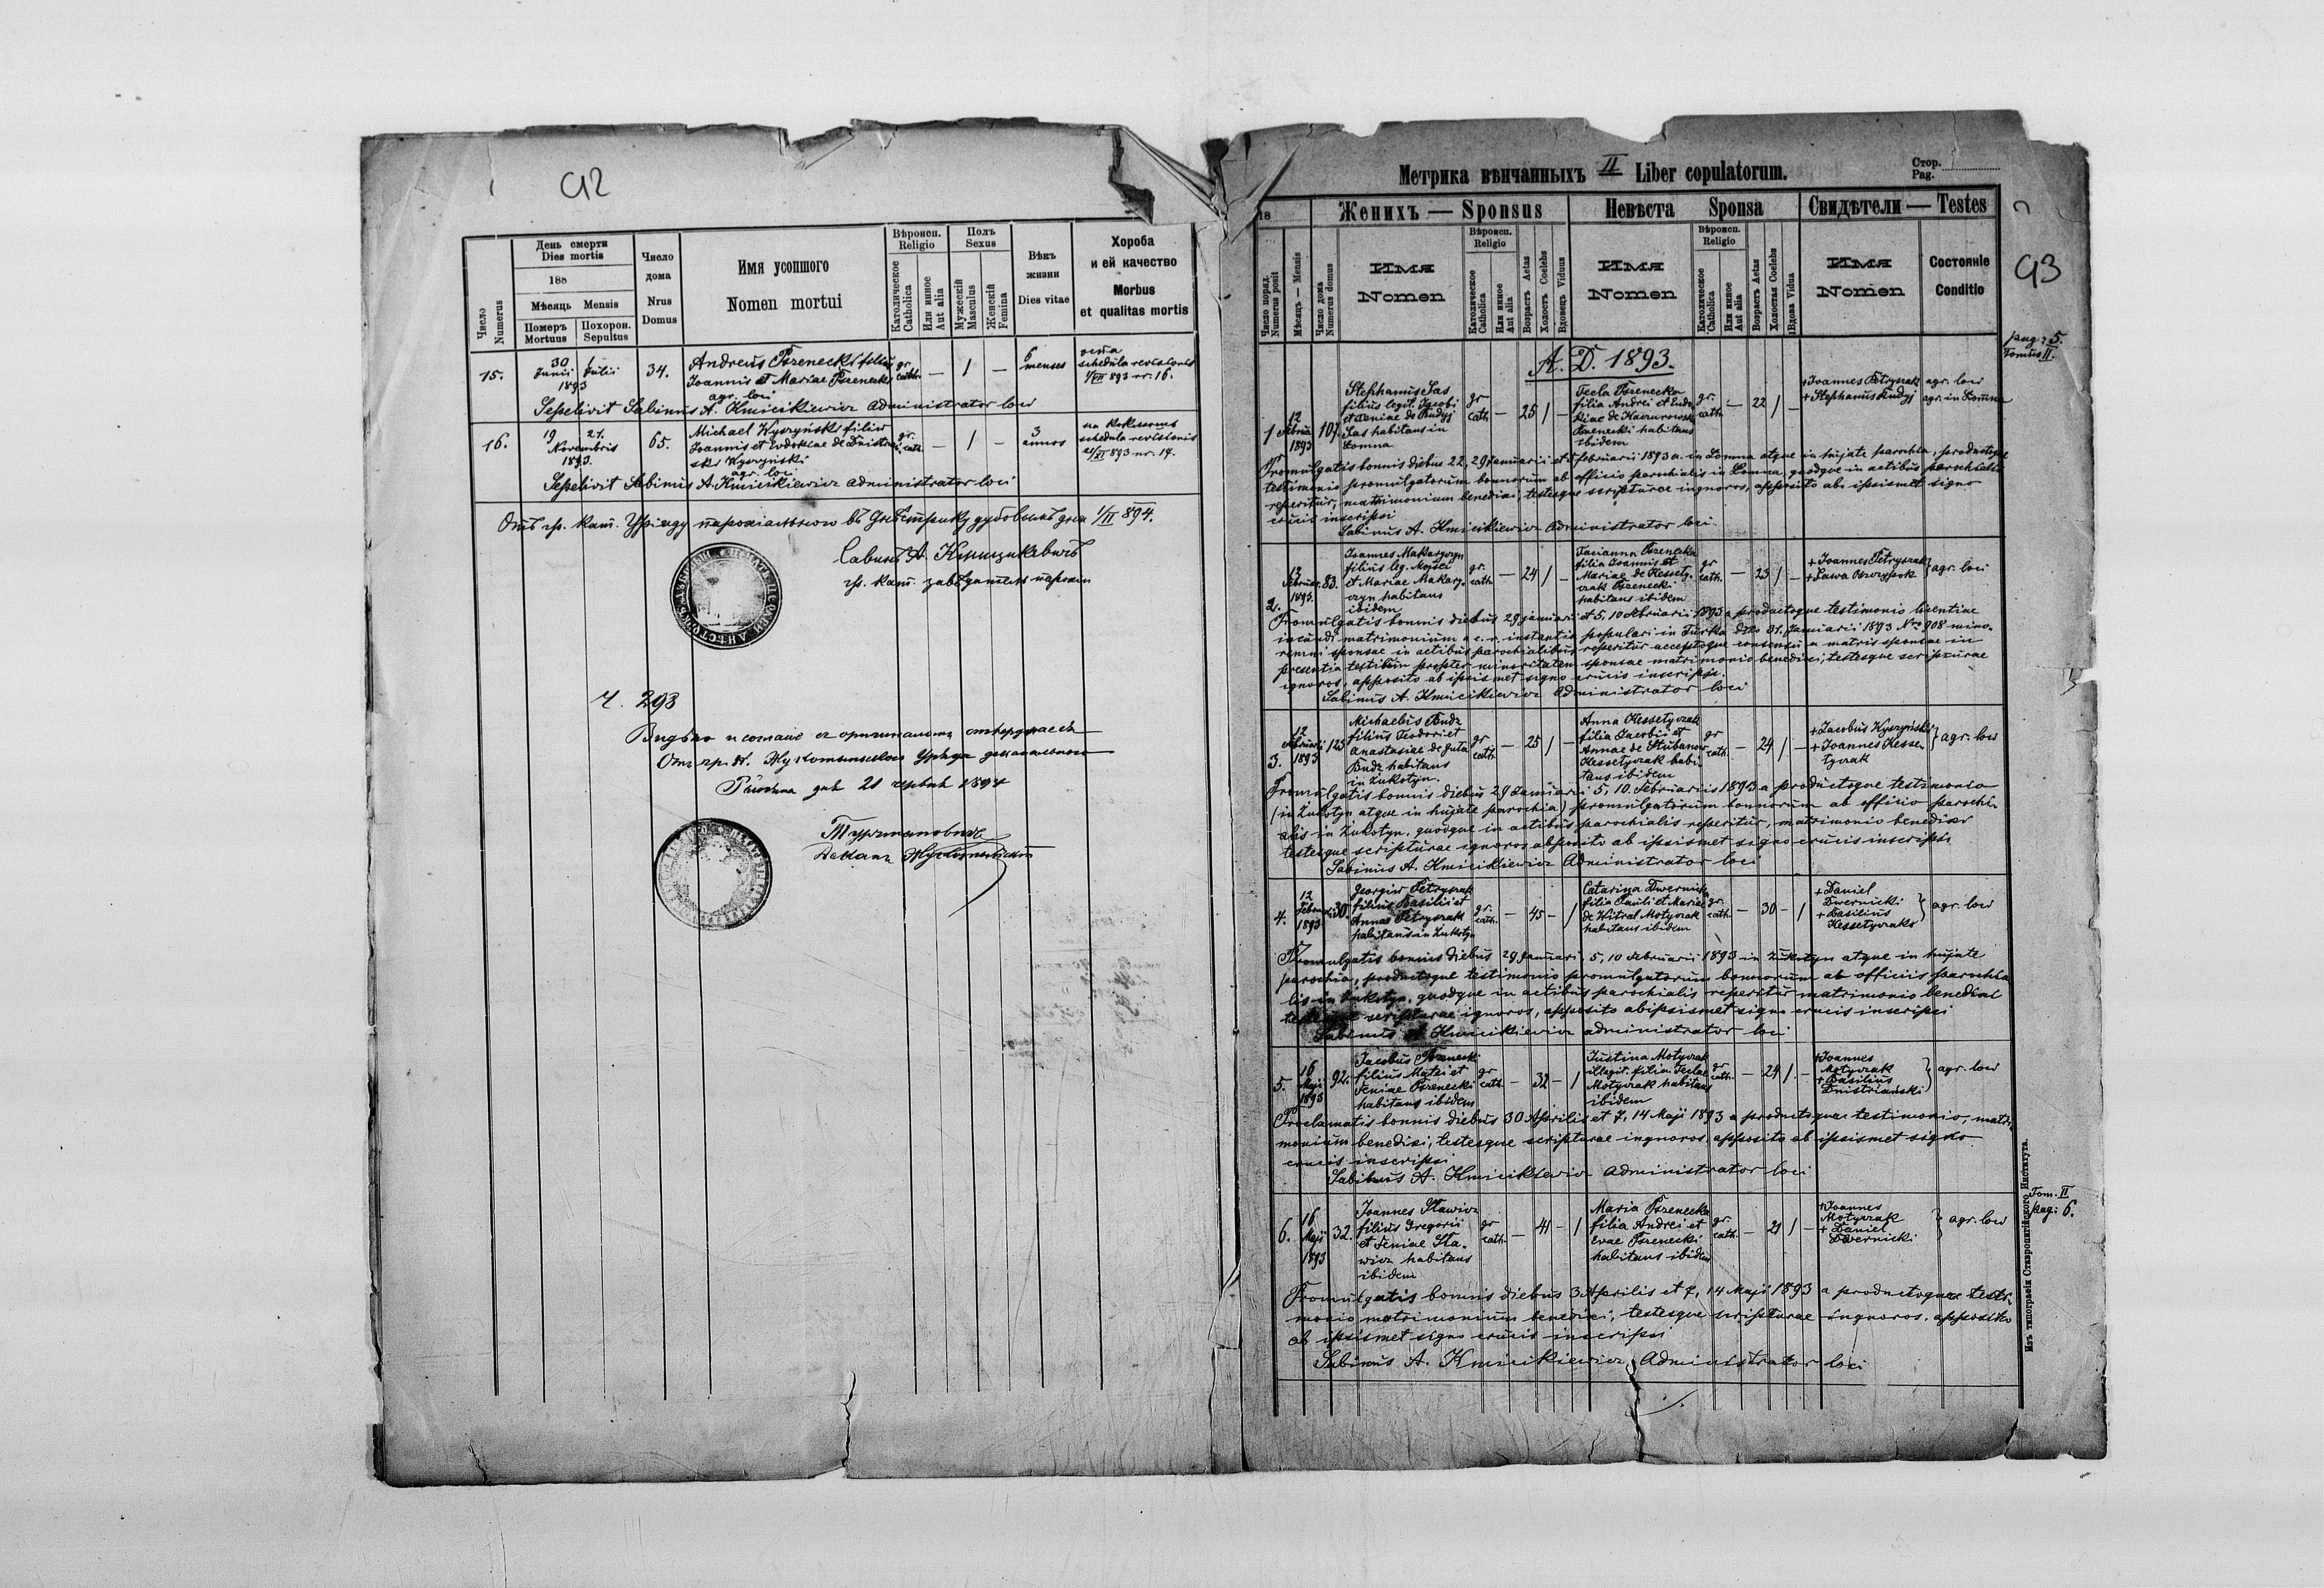 92
День смерти
Dies mortis
188
Мѣсяць Mensis
Померъ
Mortuus
Похорон.
Sepultus
Число
Numerus
Число
дома
Nrus
Domus
Имя усопшого
Nomen mortui
Вѣроисп.
Religio
Католическое
Catholica
Или инное
Aut alia
Полъ
Sexus
Мужескій
Masculus
Женскій
Femina
Вѣкъ
жизни
Dies vitae
Хороба
и ей качество
Morbus
et qualitas mortis
15.
30 Junii
1 Julii
1893
34.
Andreas Pszenecki filius
Joannis et Mariae Pszenecki
agr. loci
gr.
cath.
— 1 —
6
menses
schedula revisionis
1/VII 893 nr. 16.
Sepelivit Sabinus A. Kmicikiewicz administrator loci
16.
19 21
Novembris
1893.
65.
Michael Wyszyński filius
Joannis et Eudokiae de Dnistrian
ski Wyszyński
agr. loci
gr.
cath.
— 1 —
3
annos
schedula revisionis
21/XI 893 nr. 17.
Sepelivit Sabinus A. Kmicikiewicz administrator loci
Отъ гр. кат. Уряду парохіяльного въ Днѣстрику дубовымъ дня 1/II 894.
Савинъ А. Кмицикевичъ
гр. кат. завѣдатель парохіи
Ч. 293
Видѣно и согласіе съ оригиналомъ стверджаесь
Отъ гр. к. Жукотинского Уряда деканального
дня 21 червня 1894
Турчмановичъ
Деканъ Жукотинскій
Метрика вѣнчанныхъ II Liber copulatorum.
Стор.
Pag.
93
18
Женихъ — Sponsus
Невѣста Sponsa
Свидѣтели — Testes
Число поряд.
Numerus posit
Мѣсяць — Mensis
Число дома
Numerus domus
Имя
Nomen
Вѣроисп.
Religio
Католическое
Catholica
Или инное
Aut alia
Возрастъ Aetas
Холостъ Coelebs
Вдовецъ Viduus
Имя
Nomen
Вѣроисп.
Religio
Католическое
Catholica
Или инное
Aut alia
Возрастъ Aetas
Холостая Coelebs
Вдова Vidua
Имя
Nomen
Состояніе
Conditio
pag: 5.
Tomus II.
A. D. 1893.
1
12
Februarii
1893
107.
Stephanus Sas
filius legit. Jacobi
et Xeniae de Rudyj
Sas habitans in
Łomna
gr
cath.
— 25 1 —
Tecla Pszenecka
filia Andrei et Eudo
kiae de Kaczurowska
Pszenecki habitans
ibidem
gr.
cath.
— 22 1 —
+ Joannes Petryszak
+ Stephanus Rudyj
agr. loci
agr. in Łomna
Promulgatis bannis diebus 22, 29 Januarii et 5 februarii 1893 a. in Łomna atque in hujate parochia, productoque
testimonio promulgatorum bannorum ab officio parochialis in Łomna, quodque in actibus parochialis
reperitur, matrimonium benedixi, testesque scripturae ingnoros, apposito ab ipsismet signo
crucis inscripsi
Sabinus A. Kmicikiewicz Administrator loci.
2.
12
Februar.
1893.
83.
Joannes Makaryczyn
filius leg. Mojsei
et Mariae Makary-
czyn habitans
ibidem
gr.
cath.
— 24 1 —
Tacianna Pszenecka
filia Joannis et
Mariae de Kessety-
czak Pszenecki
habitans ibidem
gr
cath.
— 23 1 —
+ Joannes Petryszak
agr. loci
Promulgatis bannis diebus 29 januarii et 5, 10 Februarii 1893 a productoque testimonio licentiae
ineundi matrimonium a c. r. instantis populari in Turka ddto 31. Januarii 1893 Nro 908 mino-
renni sponsae in actibus parochialibus reperitur acceptoque consensu a matris sponsae in
presentia testibum propter minoritatem sponsae matrimonio benedixi, testesque scripturae
ignoros, apposito ab ipsismet signo crucis inscripsi.
Sabinus A. Kmicikiewicz Administrator loci
3.
12
Februarii
1893
125
Michaelus Budz
filius Teodori et
Anastasiae de Guta
Budz habitans
in Żukotyn.
gr
cath.
— 25 1 —
Anna Kessetyczak
filia Jacobii et
Annae de Hribanow
Kessetyczak habi
tans ibidem
gr
cath.
— 24 1 —
+ Jacobus Wyszyński
+ Joannes Kesse-
tyczak
agr. loci
Promulgatis bannis diebus 29 Januarii 5, 10. Februariis 1893 a productoque testimonio
(in Żukotyn atque in hujate parochia) promulgatorum bannorum ab officio parochi-
alis in Żukotyn, quodque in actibus parochialis reperitur, matrimonio benedixi
testesque scripturae ignoros apposito ab ipsismet signo crucis inscripsi
Sabinus A. Kmicikiewicz Administrator loci
4.
12
Februarii
1893
30.
Georgius Petryszak
filius Basilii et
Annae Petryszak
habitans in Żukotyn
gr.
cath.
— 45 — 1
Catarina Dwernicka
filia Pauli et Mariae
de Witral Motyczak
habitans ibidem
gr.
cath.
— 30 — 1
+ Daniel
Dwernicki
+ Basilius
Kessetyczak
agr. loci
Promulgatis bannis diebus 29 Januarii 5, 10 Februarii 1893 in Żukotyn atque in hujate
parochia, productoque testimonio promulgatorum bannorum ab officiis parochia
lis in Żukotyn, quodque in actibus parochialis reperitur matrimonio benedixi
testesque scripturae ignoros, apposito ab ipsismet signo crucis inscripsi
Sabinus A. Kmicikiewicz administrator loci
5.
16
Maji
1893
92.
Jacobus Pszenecki
filius Matei et
Feniae Pszenecki
habitans ibidem
gr
cath.
— 32 — 1
Justina Motyczak
illegit. filia Teclae
Motyczak habitans
ibidem
gr
cath.
— 24 1 —
+ Joannes
Motyczak
+ Basilius
Dnistriański
agr. loci
Proclamatis bannis diebus 30 Aprilis et 7, 14 Maji 1893 a productoque testimonio, matri-
monium benedixi, testesque scripturae ingnoros, apposito ab ipsismet signo
crucis inscripsi
Sabinus A. Kmicikiewicz Administrator loci
Tom. II
pag: 6.
6.
16
Maji
1893
32.
Joannes Stawicz
filius Gregorii
et Feniae Sta-
wicz habitans
ibidem
gr
cath.
— 41 — 1
Maria Pszenecka
filia Andrei et
Evae Pszenecki
habitans ibidem
gr.
cath.
— 21 1 —
+ Joannes
Motyczak
+ Daniel
Dwernicki
agr. loci
Promulgatis bannis diebus 3 Aprilis et 7, 14 Maji 1893 a productoque testi-
monio matrimonium benedixi, testesque scripturae ingnoros, apposito
ab ipsismet signo crucis inscripsi
Sabinus A. Kmicikiewicz, Administrator loci
Изъ типографіи Ставропигійского Института.